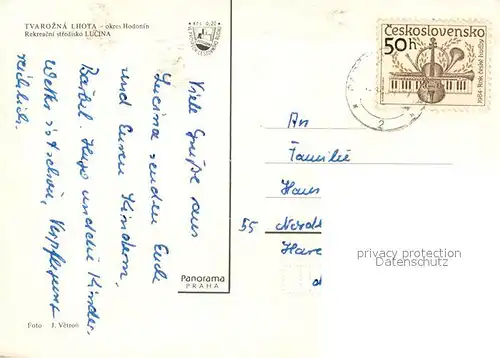 TVAROŽNÁ LHOTA – okres Hodonín
Rekreační středisko LUČINA
Viele Grüße aus
Lucina senden Euch
und Euren Kindern,
Bärbel, Hugo und die Kinder.
Wetter ist schön, Verpflegung
reichlich.
Foto J. Větroň
Panorama
PRAHA
Kčs 0,20
Československo
50h
1984: Rok české hudby
2
An
Familie
Hans
55
privacy protection
Datenschutz